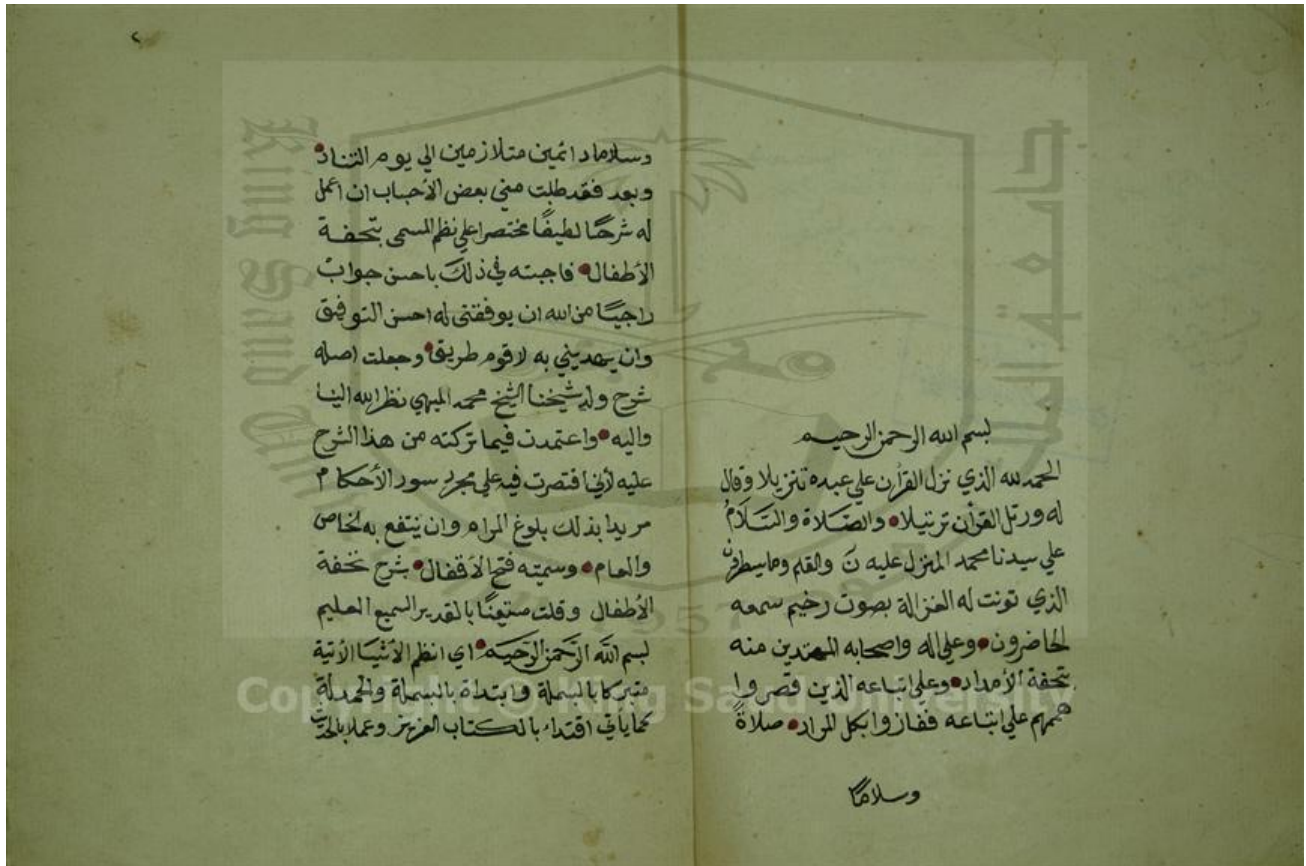 بسم الله الرحمن الرحيم
الحمد لله الذي نزل القرآن علي عبده تنزيلا وقال
له ورتل القرأن ترتيلا والصلاة والسلام
علي سيدنا محمد المنزل عليه نَ والقلم وما يسطرون
الذي تونت له الغزالة بصوت رخيم سمعه
الحاضرون وعلي اله واصحابه المهتدين منه
بتحفة الأمداد وعلي اتباعه الذين قصروا
هممهم علي اتباعه ففازوا بكل المراد صلاةً
وسلامًا
٢
وسلاما دائمين متلازمين الي يوم التناد
وبعد فقد طلبت مني بعض الأحباب ان اعمل
له شرحًا لطيفًا مختصرا علي نظم المسمي بتحفة
الأطفال فاجبته في ذلك باحسن جواب
راجيًا من الله ان يوفقني له احسن التوفيق
وان يهديني به لاقوم طريق وجعلت اصله
شرح ولد شيخنا الشيخ محمد الميهي نظر الله الينا
واليه واعتمدت فيما تركته من هذا الشرح
عليه لأني اقتصرت فيه علي مجرد سور الأحكام
مريدا بذلك بلوغ المرام وان ينتفع به الخاص
والعام وسميته فتح الأقفال بشرح تحفة
الأطفال وقلت مستعينًا بالقدير السميع العليم
بسم الله الرحمن الرحيم اي انظم الأشيا الأتية
متبركا بالبسملة وابتداه بالبسملة والحمدلة
كما يأتي اقتداء بالكتاب العزيز وعملا
جامعة الملك
King Saud University
1957
Copyright © King Saud University